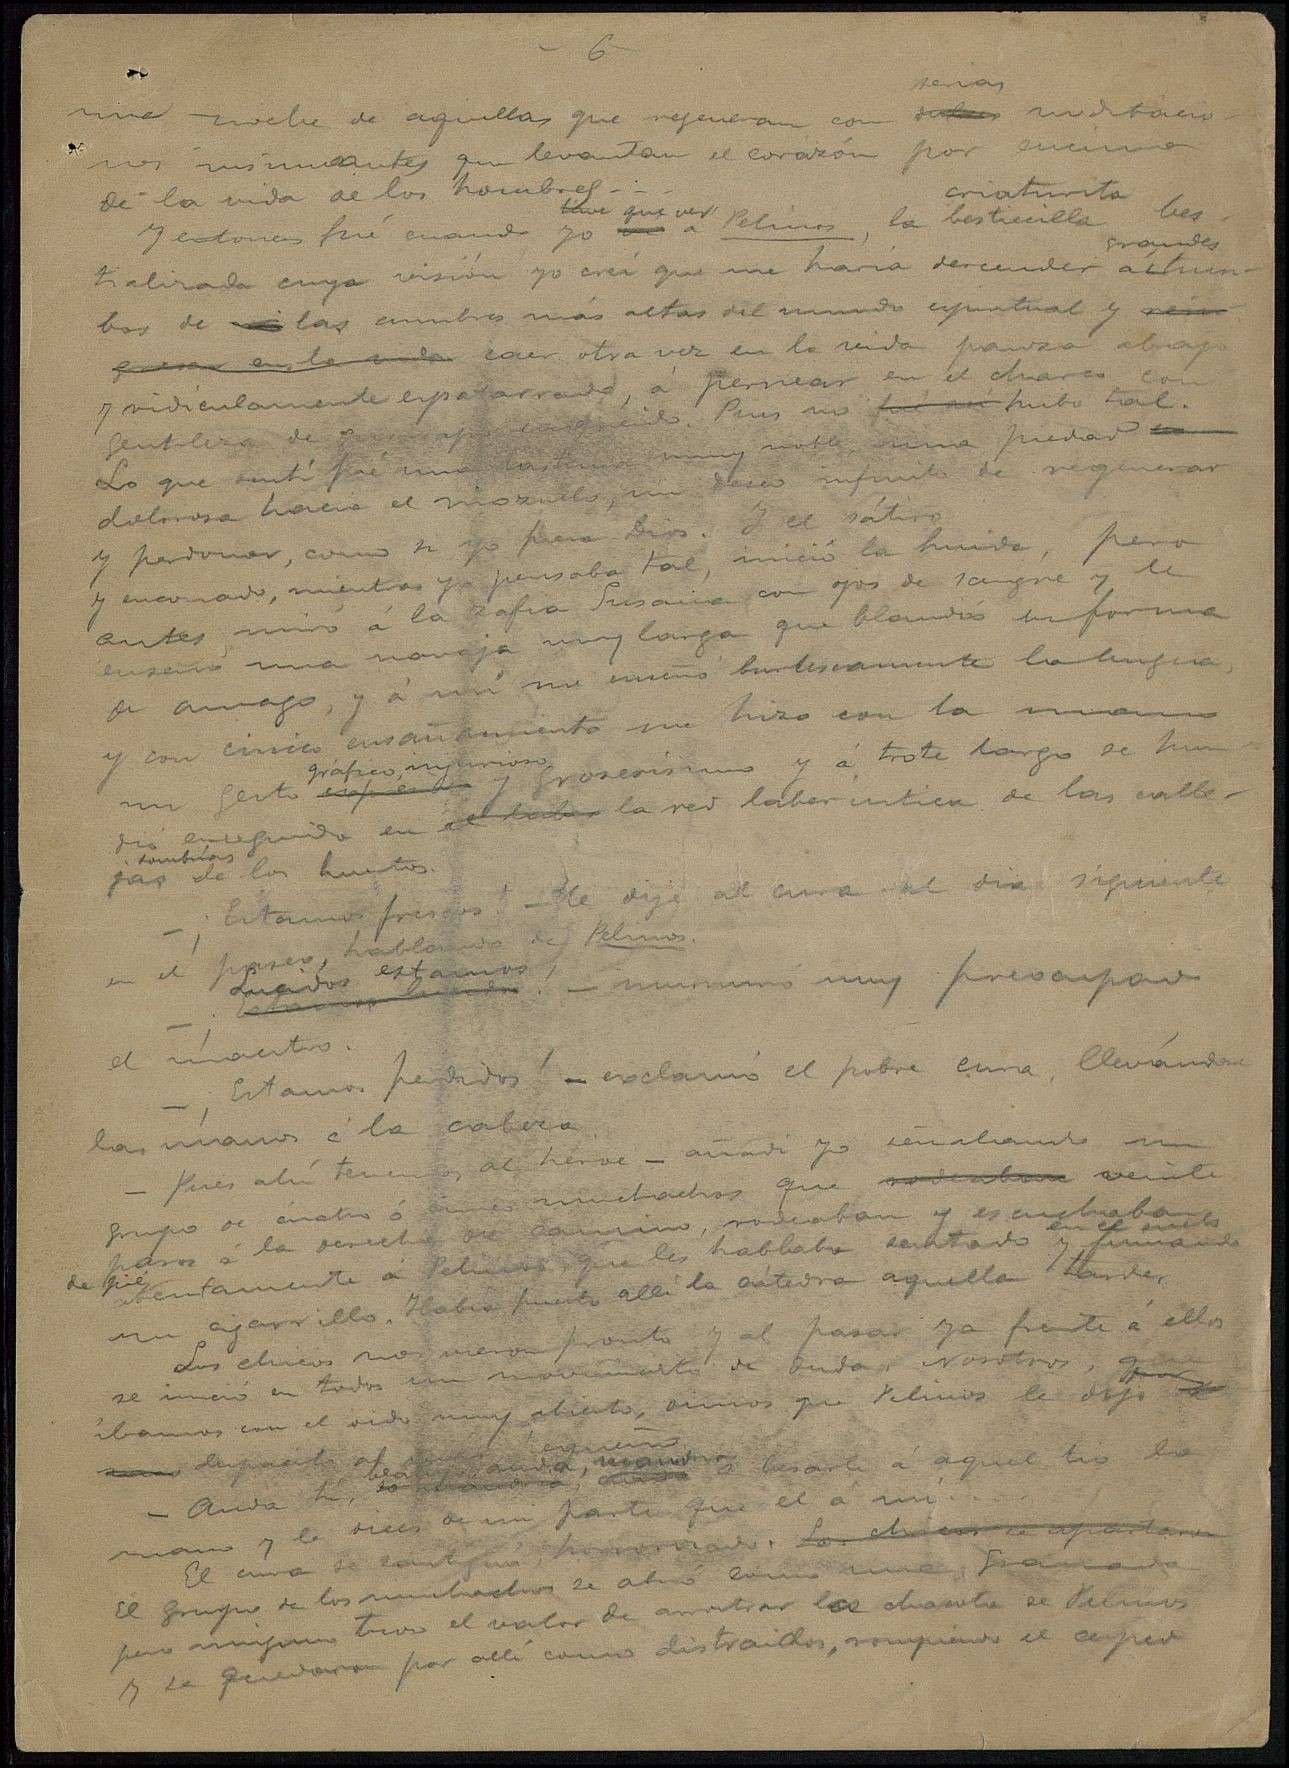 - 6 -
serias
una noche de aquellas que regeneran con dulces meditacio-
nes insinuantes que levantan el corazón por encima
de la vida de los hombres...
tuve que ver criaturita
Y entonces fué cuando yo vi a Pelinos, la bestiecilla bes-
grandes
tializada cuya visión yo creí que me haría descender á tum-
bos de mi las cumbres más altas del mundo espiritual y rein-
gresar en la vida caer otra vez en la vida panza abajo
y ridiculamente espatarrado, á pernear en el charco con
gentileza de. Pues no fué así hubo tal.
Lo que sentí fué una lástima muy noble, una piedad
dolorosa hacia el mozuelo, un deseo infinito de regenerar
y perdonar, como si yo fuera Dios. Y el sátiro
y enconado, mientras yo pensaba tal, inició la huida, pero
antes miró á la zafia Susana con ojos de sangre y le
enseñó una navaja muy larga que blandió en forma
de amago, y á mí me enseñó burlescamente la lengua,
y con cínico ensañamiento me hizo con la mano
gráfico, injurioso
un gesto y groserísimo y á trote largo se hun-
dió enseguida en el la red laberintica de las calle-
sombrías
jas de los huertos.
-¡Estamos frescos! - le dije al cura al dia siguiente
en el paseo, hablando de Pelinos.
Lucidos estamos
-¡! - murmuró muy preocupado
el maestro.
-¡Estamos perdidos! - exclamó el pobre cura, llevándose
las manos á la cabeza
- Pues ahí tenemos al héroe - añadí yo señalando un
grupo de cuatro ó cinco muchachos que rodeaban veinte
pasos á la derecha del camino, rodeaban y escuchaban
en el suelo
de pié atentamente á Pelinos, que les hablaba sentado y fumando
un cigarrillo. Había puesto allí la cátedra aquella tarde.
Los chicos nos vieron pronto y al pasar ya frente á ellos
se inició en todos un movimiento de duda. Nosotros, que
ibamos con el oido muy abierto, oimos que Pelinos le dijo
despacito al más pequeño
- Anda tú, á besarle á aquel tio la
mano y le dices de mi parte que él á mí...
El cura se santiguó, horrorizado. Los chicos se apartaron
El grupo de los muchachos se abrió como una granada
pero ninguno tuvo el valor de arrostrar la chacota de Pelinos
y se quedaron por allí como distraidos, rompiendo el cesped